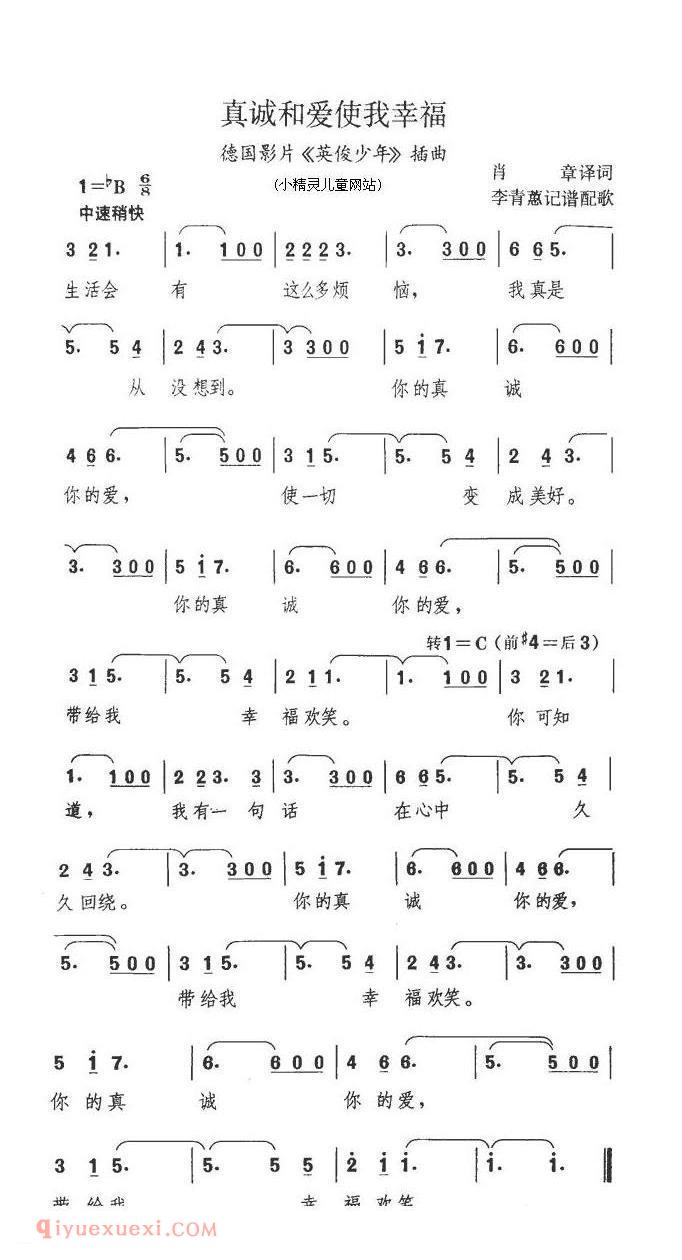 真诚和爱使我幸福
德国影片《英俊少年》插曲
1=♭B 6/8
(小精灵儿童网站)
肖 章译词
李青蕙记谱配歌
中速稍快
3 2 1. | 1. 1 0 0 | 2 2 2 3. | 3. 3 0 0 | 6 6 5. |
生活会 有 这么多烦 恼， 我真是
5. 5 4 | 2 4 3. | 3 3 0 0 | 5 1 7. | 6. 6 0 0 |
从 没想到。 你的真 诚
4 6 6. | 5. 5 0 0 | 3 1 5. | 5. 5 4 | 2 4 3. |
你的爱， 使一切 变 成美好。
3. 3 0 0 | 5 1 7. | 6. 6 0 0 | 4 6 6. | 5. 5 0 0 |
你的真 诚 你的爱，
转1=C (前♯4=后3)
3 1 5. | 5. 5 4 | 2 1 1. | 1. 1 0 0 | 3 2 1. |
带给我 幸 福欢笑。 你可知
1. 1 0 0 | 2 2 3. 3 | 3. 3 0 0 | 6 6 5. | 5. 5 4 |
道， 我有一 句 话 在心中 久
2 4 3. | 3. 3 0 0 | 5 1 7. | 6. 6 0 0 | 4 6 6. |
久回绕。 你的真 诚 你的爱，
5. 5 0 0 | 3 1 5. | 5. 5 4 | 2 4 3. | 3. 3 0 0 |
带给我 幸 福欢笑。
5 1 7. | 6. 6 0 0 | 4 6 6. | 5. 5 0 0 |
你 的真 诚 你 的爱，
3 1 5. | 5. 5 5 | 2 1 1. | 1. 1. ‖
带 给我 幸 福 欢笑
qiyuexuexi.com